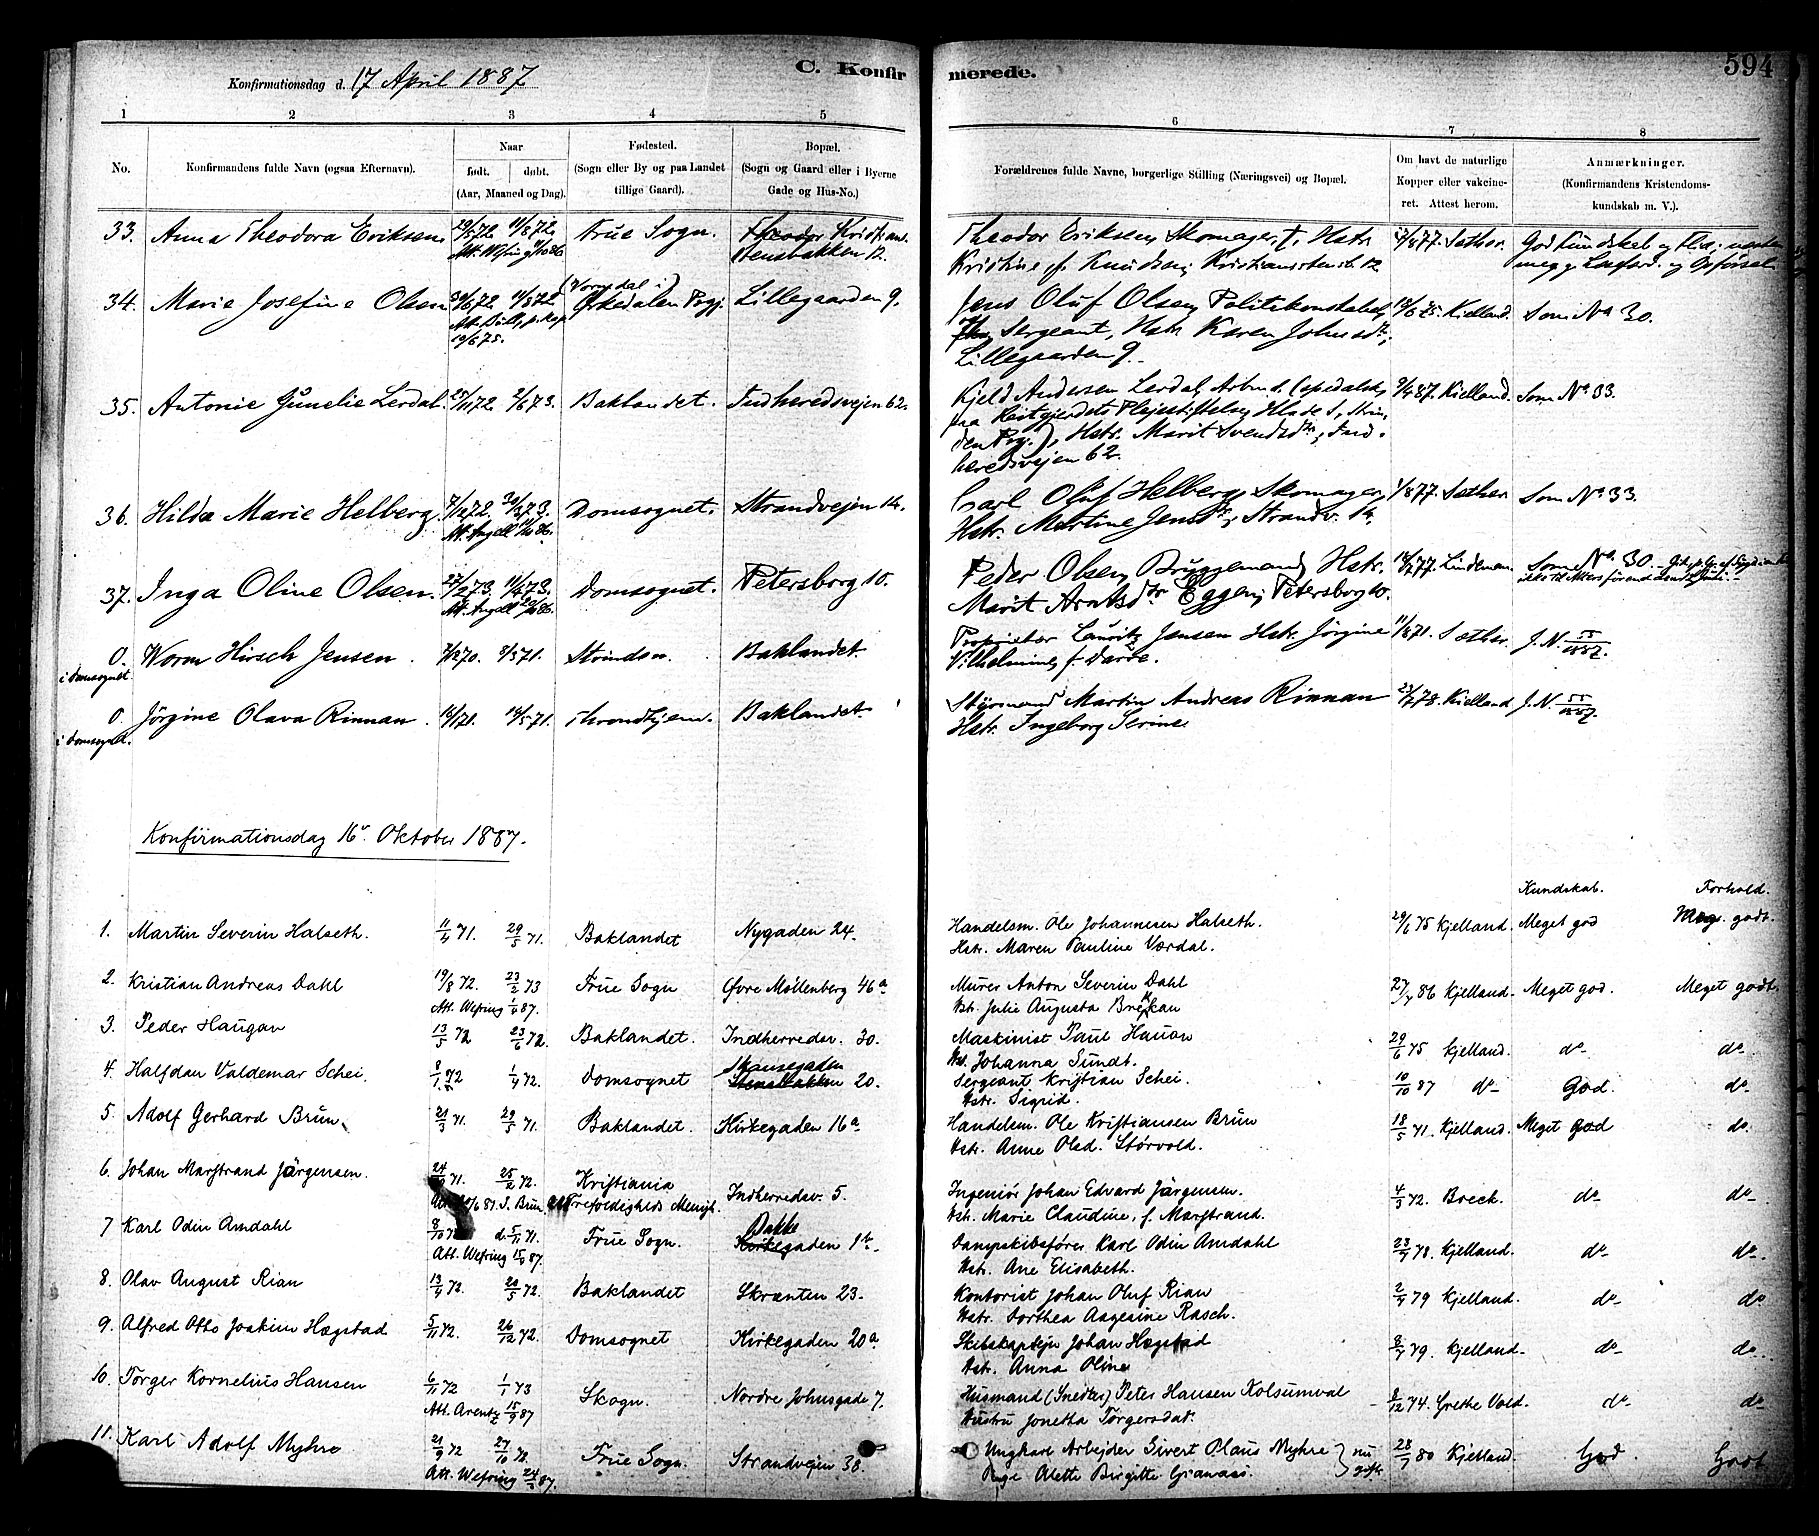 594
C. Konfirmerede.
Konfirmationsdag d. 17 April 1887
1 2 3 4 5 6 7 8
No.
Konfirmandens fulde Navn (ogsaa Efternavn).
Naar
født. døbt.
(Aar, Maaned og Dag).
Fødested.
(Sogn eller By og paa Landet
tillige Gaard).
Bopæl.
(Sogn og Gaard eller i Byerne
Gade og Hus-No.)
Forældrenes fulde Navne, borgerlige Stilling (Næringsvei) og Bopæl.
Om havt de naturlige
Kopper eller vakcine-
ret. Attest herom.
Anmærkninger.
(Konfirmandens Kristendoms-
kundskab m. V.).
33. Anna Theodora Eriksen 11/8 72. Frue Sogn. Kristian-
stensbakken 12.
Theodor Eriksen, Skomager †, Hstr.
Kristine, f. Knudsen, Kristianstensb. 12
Sæther. God Kundskab og Flid; næsten
meg. g. Opførsel
34. Marie Josefine Olsen 11/8 72 (Vormdal i)
Ørkedalen Pgj. Lillegaarden 9.
19/6 75.
Jens Oluf Olsen, Politikonstabel,
Sergeant, Hstr. Karen Johnsdtr,
Lillegaarden 9.
19/6 75. Kielland. Som No 30.
35. Antonie Gunelie Lerdal. 27/11 72. 2/6 73. Baklandet. Indherredsvejen 62.
Kjeld Andersen Lerdal, Arbmd. (spedalsk,
paa Reitgjerdets Plejestiftelse, Hstr.
Marit Svendsdtr, Ind-
herredsvejen 62.
Kielland. Som No 33.
36. Hilda Marie Helberg 7/12 72. 30/3 73. Domsognet. Strandvejen 14.
Att. Angell
Carl Oluf Helberg, Skomager,
Hstr. Martine Jensdtr, Strandv. 14.
1/8 77. Sæther. Som No 33.
37. Inga Oline Olsen. 27/2 73. 11/4 73. Domsognet. Petersborg 10.
Att. Angell
Peder Olsen, Bryggemand, Hstr.
Marit Arntsdtr Eggen, Petersborg 10.
Lindeman. Som No. 30.
0. Worm Hirsch Jensen. 7/12 70. 8/3 71. Strinden. Baklandet.
i Domsognet
Proprietær Lauritz Jensen Hstr. Jørgine
Vilhelmine, f. Darre.
11/8 71. Sæther. J.N. 55/1887.
0. Jørgine Olava Rinnan. 18/1 71. 18/5 71. Throndhjem. Baklandet.
i Domsognet.
Styrmand Martin Andreas Rinnan
Hstr. Ingeborg Serine.
Kielland J.N. 55/1887.
Konfirmationsdag 16de Oktober 1887.
Kundskab. Forhold.
1. Martin Severin Halseth. 11/4 71. 29/5 71. Baklandet Nygaden 24.
Handelsm. Ole Johannesen Halseth.
Hstr. Maren Pauline Værdal.
29/6 75 Kjelland. Meget god Meg. godt.
2. Kristian Andreas Dahl 19/8 72. 23/2 73 Frue Sogn Øvre Møllenberg 46a
Att. Wefring 1/4 87.
Murer Anton Severin Dahl
Hstr. Julie Augusta Brekkan
27/7 86 Kjelland. Meget god. Meget godt.
3. Peder Haugan 13/5 72 23/6 72. Baklandet. Indherredsv. 30.
Maskinist Paul Hauan
Hstr. Johanna Sundt.
29/6 75 Kjelland. do do
4. Halfdan Valdemar Schei. 8/1 72 1/4 72. Domsognet Skansegaden
Stensbakken 20.
Sergeant Kristian Schei.
Hstr. Sigrid.
10/10 87 do God. do
5. Adolf Gerhard Brun 21/3 71. 29/5 71. Baklandet. Kirkegaden 16a
Handelsm. Ole Kristiansen Brun
Hstr. Anne Olsd. Størvold.
18/5 71. Kjelland. Meget god do
6. Johan Marstrand Jørgensen. 24/ 71. 25/2 72. Kristiania Indherredsv. 5.
Trefoldigheds Menigh.
Ingeniør Johan Edvard Jørgensen.
Hstr. Marie Claudine, f. Marstrand.
4/3 72. Breck. do do
7 Karl Odin Amdahl 8/10 7 d. 5/11 71. Frue Sogn. Bakke
Kirkegaden 1b
Att. Wefring 15/9 87.
Dampskibsfører Karl Odin Amdahl
Hstr. Ane Elisabeth.
23/7 78. Kjelland. do do
8. Olav August Rian 13/4 72. 20/5 72. Baklandet Skrænten 23.
Kontorist Johan Oluf Rian
Hstr. Dorthea Aagesine Rasch.
2/7 79 Kjelland. do do
9. Alfred Otto Joakim Hægstad 5/11 72. 26/12 72. Domsognet Kirkegaden 20a
Skibskaptejn Johan Hægstad
Hstr. Anna Oline
8/7 79. Kjelland. do do
10. Torger Kornelius Hansen 6/11 72 1/1 73 Skogn. Nordre Johnsgade 7.
Att. Arentz 15/9 87
Husmand (Snedker) Peter Hansen Kolsumval
Hustru Jonetha Torgersdat.
8/12 74. Grethe Vold. do do
11. Karl Adolf Myhre 21/9 72 27/10 72. Frue Sogn. Strandvejen 38.
Att. Wefring
Ungkarl Arbejder Sivert Olaus Myhre } nu
Pige Olette Birgitte Granaas. gift
28/7 80 Kjelland. God. Godt